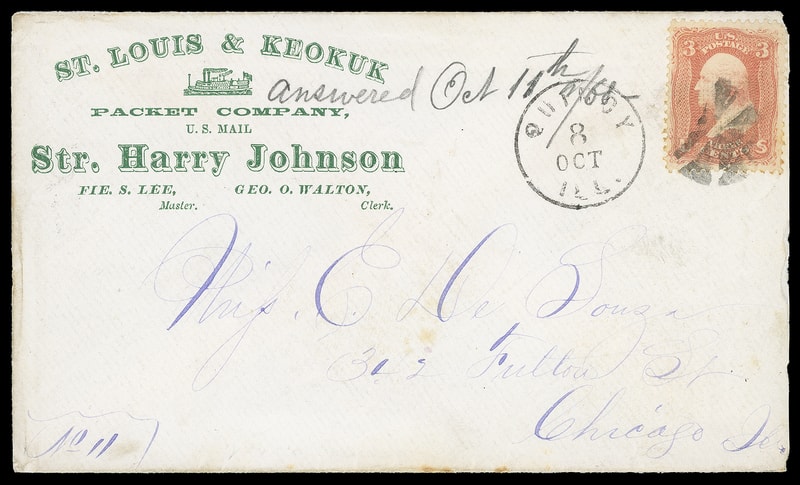 ST. LOUIS & KEOKUK
PACKET COMPANY,
U. S. MAIL
Str. Harry Johnson
FIE. S. LEE, GEO. O. WALTON,
Master. Clerk.
answered Oct 11th
QUINCY
8
OCT
ILL.
3 U.S. 3
POSTAGE
Miſs. E De Souza
302 Fulton St
Chicago Ill.
No 11